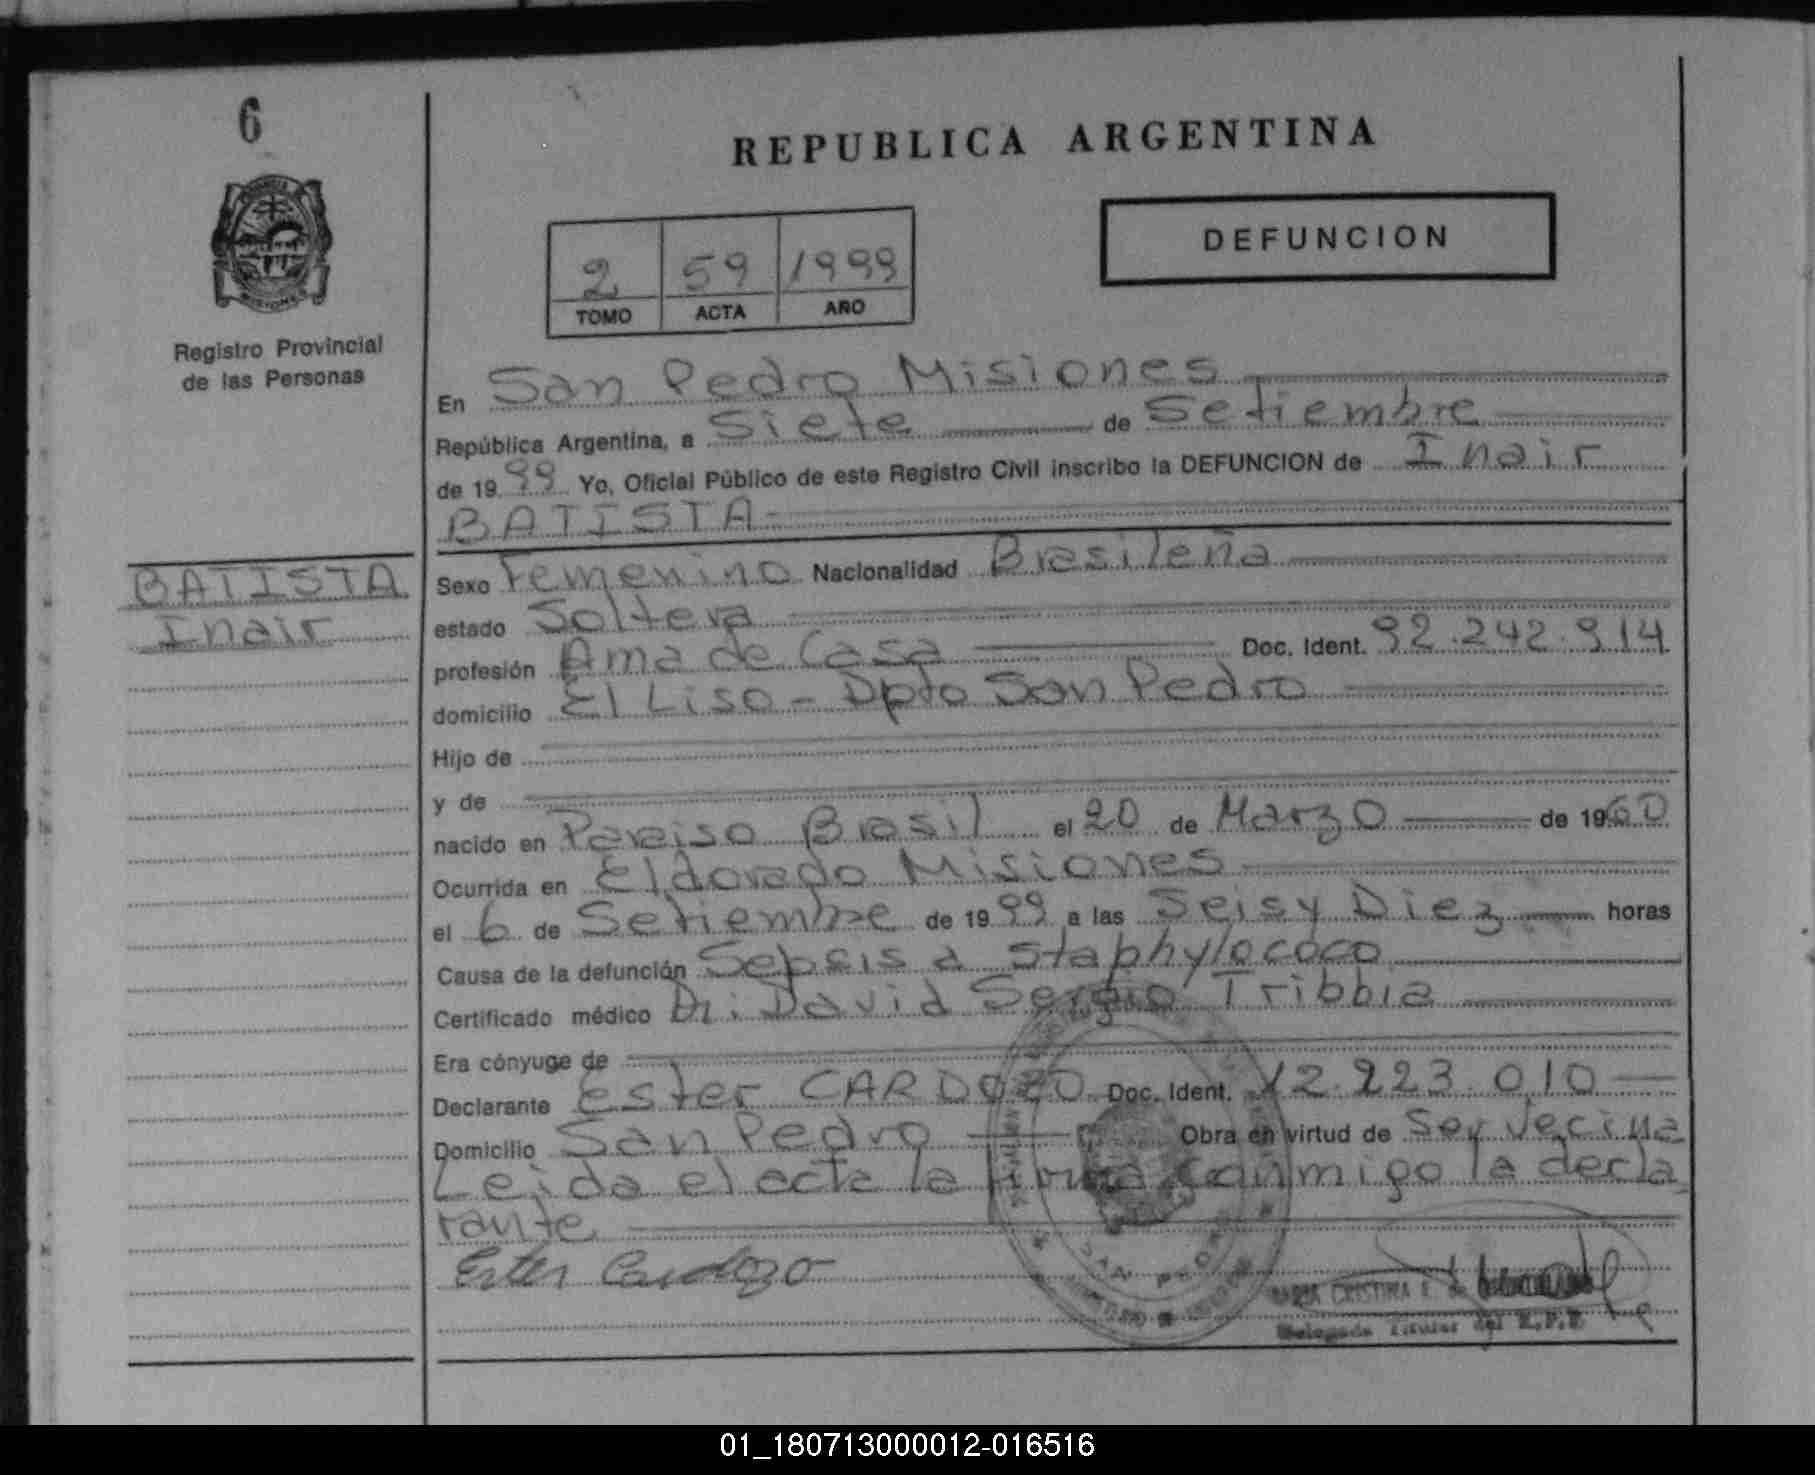 6
REPUBLICA ARGENTINA
DEFUNCION
2 59 1999
TOMO ACTA AÑO
MISIONES
Registro Provincial
de las Personas
En San Pedro Misiones
República Argentina, a Siete de Setiembre
de 1999 Yo, Oficial Público de este Registro Civil inscribo la DEFUNCION de Inair
BATISTA
BATISTA
Inair
Sexo Femenino Nacionalidad Brasileña
estado Soltera
profesión Ama de Casa Doc. Ident. 92.242.914
domicilio El Liso - Dpto San Pedro
Hijo de
y de
nacido en Paraiso Brasil el 20 de Marzo de 1960
Ocurrida en Eldorado Misiones
el 6 de Setiembre de 1999 a las Seis y Diez horas
Causa de la defunción Sepsis a staphylococo
Certificado médico Dr. David Sergio Tribbia
Era cónyuge de
Declarante Ester CARDOZO Doc. Ident. 12.223.010
Domicilio San Pedro Obra en virtud de Ser Vecina
Leida el acta la firma conmigo la decla
rante
Ester Cardozo
SAN PEDRO
MARIA CRISTINA F. de
Delegada Titular del R.P.P
01_180713000012-016516